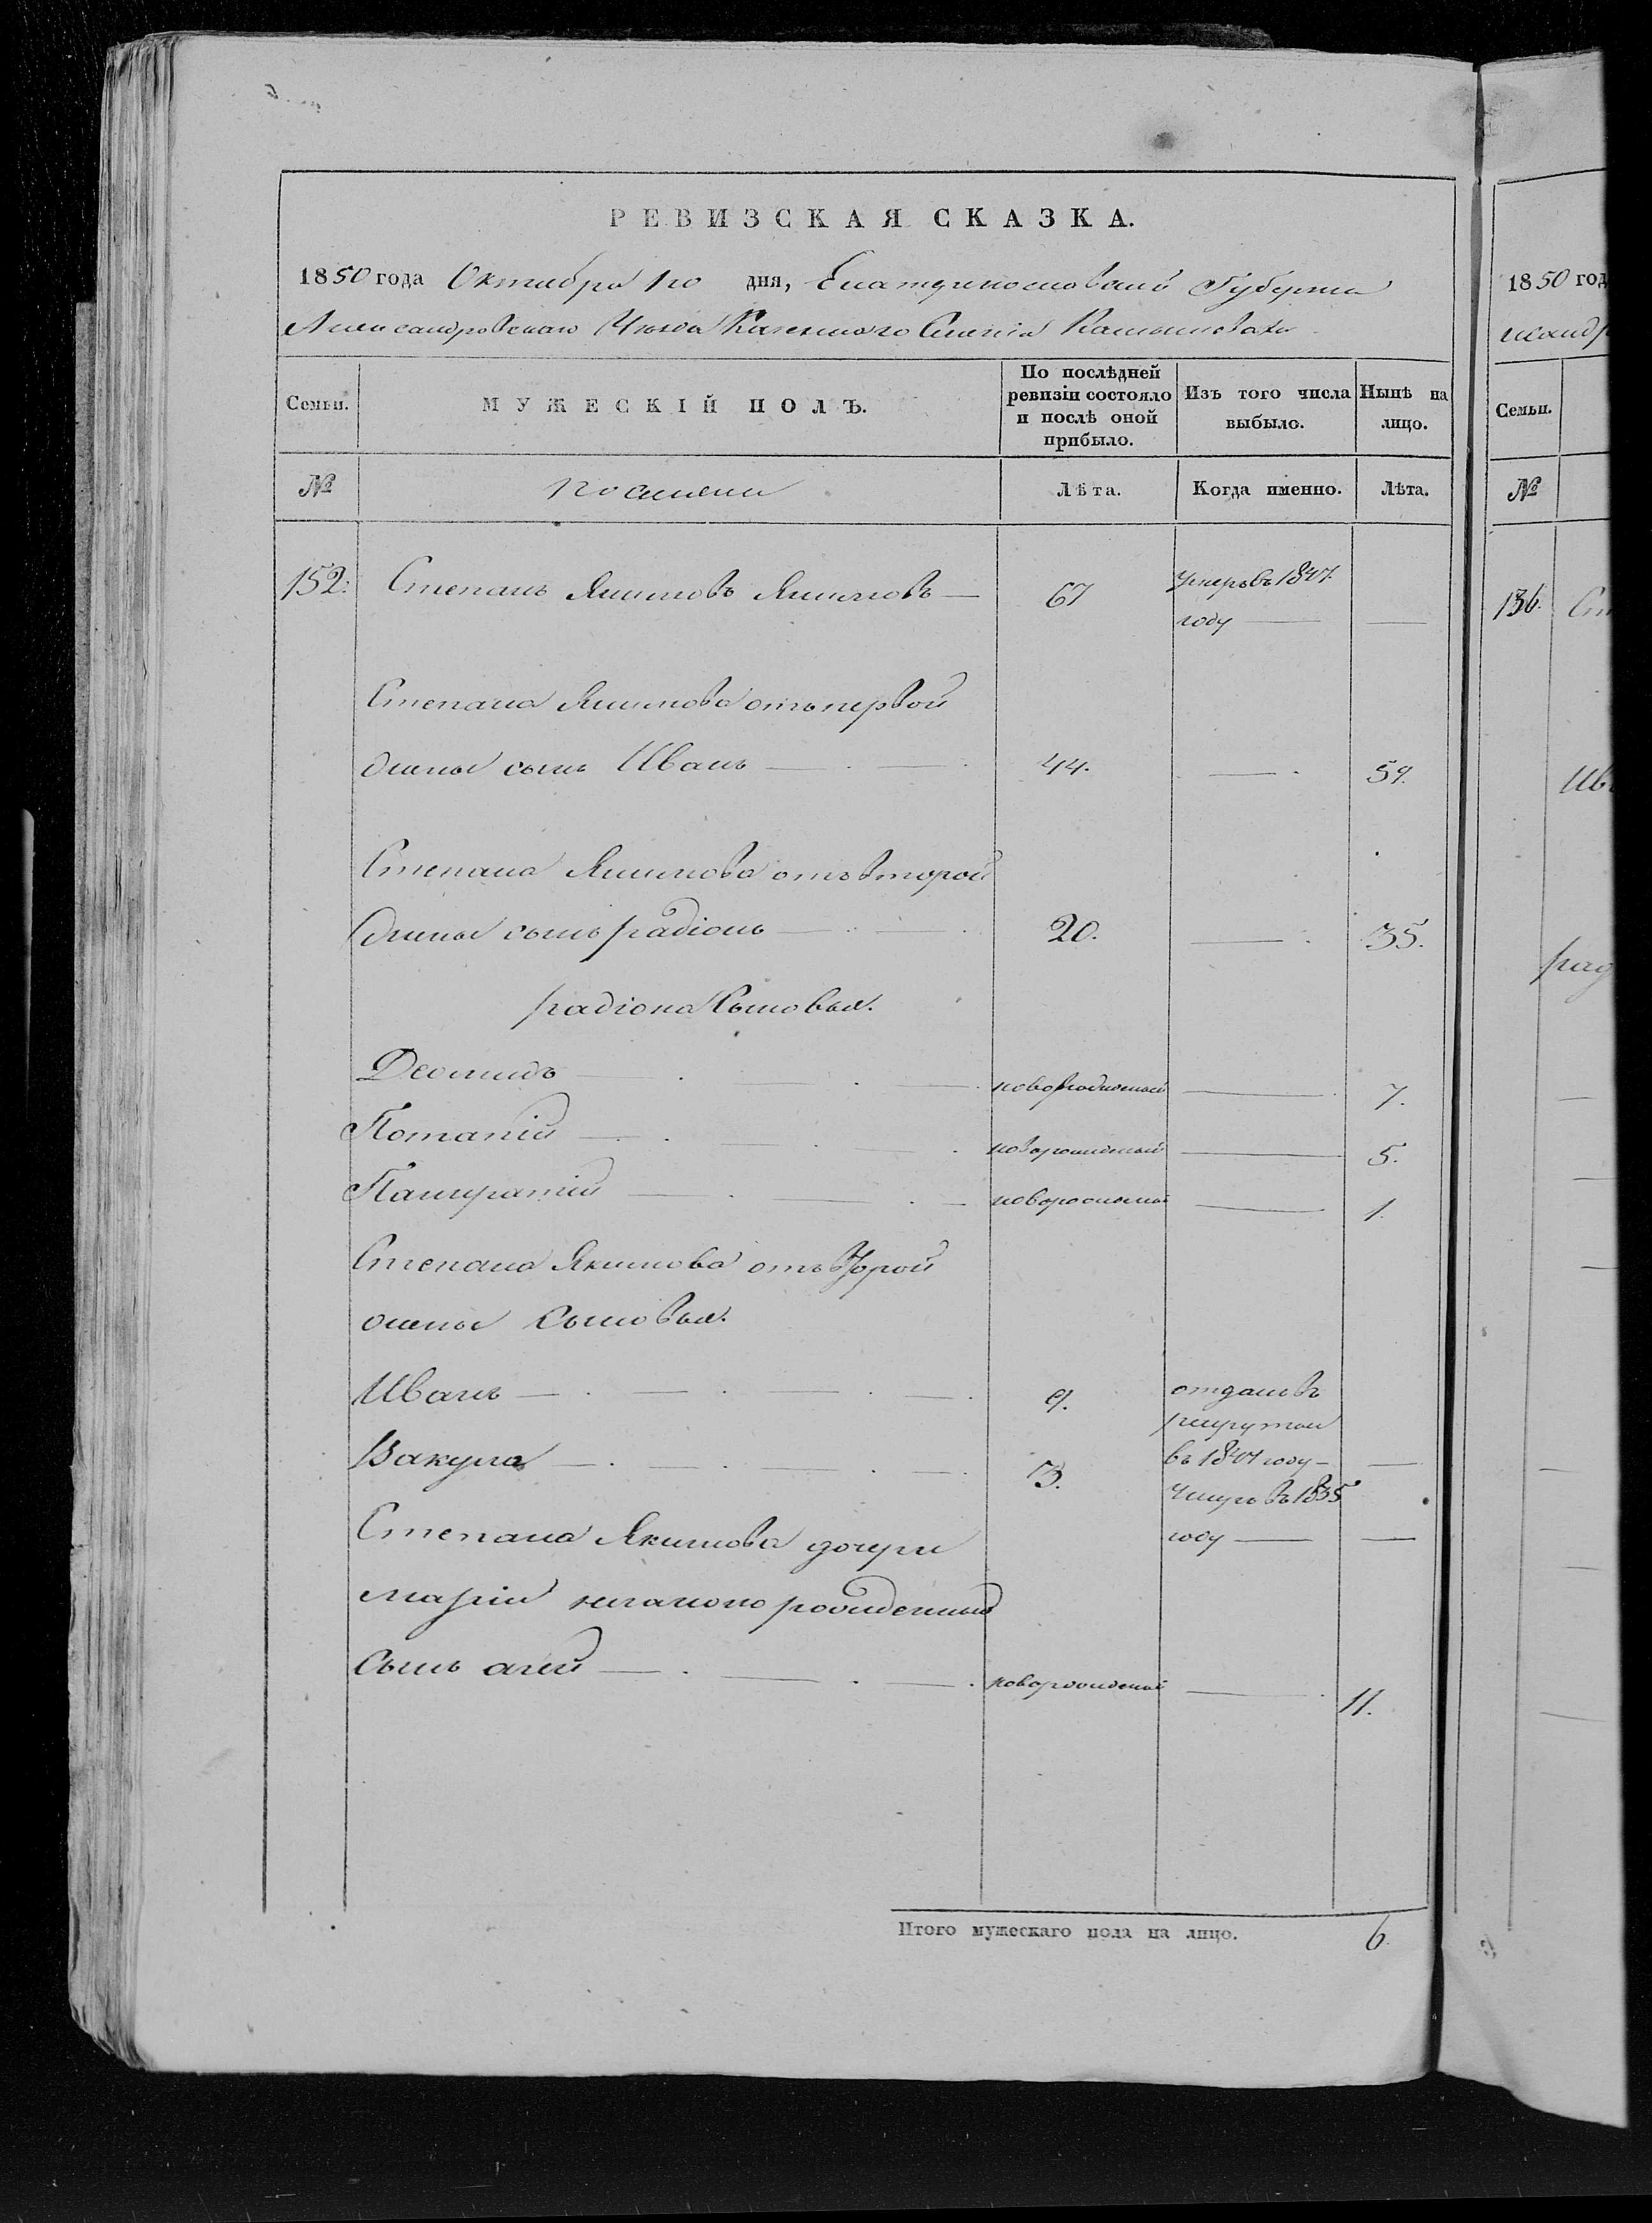 РЕВИЗСКАЯ СКАЗКА.
1850 года Октября 1го дня, Екатеринославской Губернии
Александровскаго Уезда Казеннаго Селенія Камышевахи
Семьи.
МУЖЕСКІЙ ПОЛЪ.
По послѣдней ревизіи состояло и послѣ оной прибыло.
Изъ того числа выбыло.
Нынѣ на лицо.
№
Лѣта.
Когда именно.
Лѣта.
152. Степанъ Якимовъ Якимовъ — 67 Умеръ въ 1847
году — —
Степана Якимова отъ первой
жены сынъ Иванъ — 44. — 59.
Степана Якимова отъ второй
жены сынъ радіонъ — 20. — 35.
радіона Сыновья.
Деомидъ — новорожденый — 7.
Потапій — новорожденый — 5.
Панкратій — новорожденый — 1.
Степана Якимова отъ Второй
жены Сыновья.
Иванъ — 9. отданъ въ
рекруты
въ 1847 году — —
Вакула — 3.
Умеръ въ 1835
году — —
Степана Якимова дочери
марии незаконо рожденный
Сынъ агей — новорожденый — 11.
Итого мужескаго пола на лицо. 6
1850 год
136.